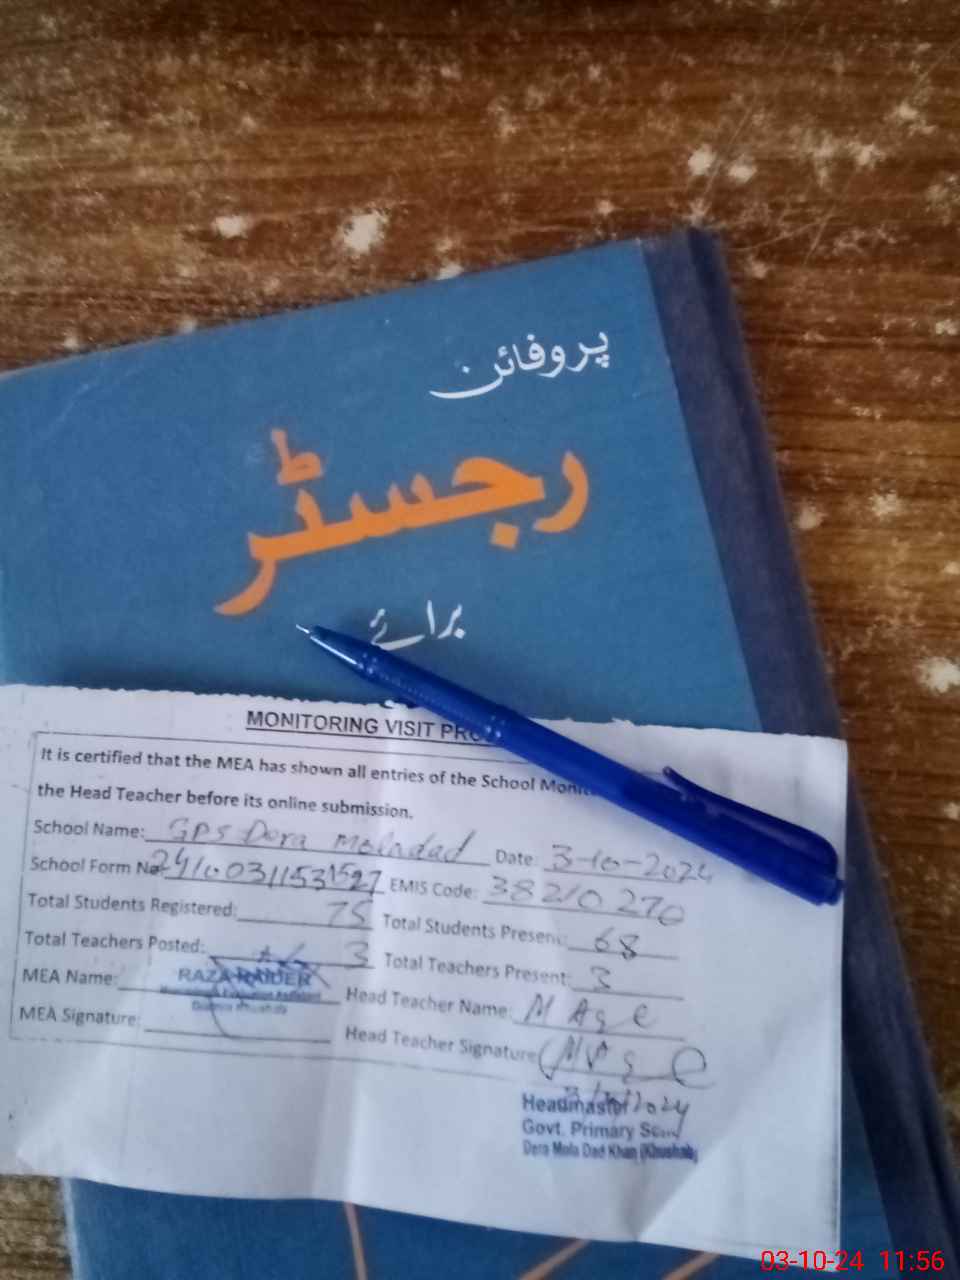 پروفائن
رجسٹر
برائے
MONITORING VISIT PRO
It is certified that the MEA has shown all entries of the School Monit
the Head Teacher before its online submission.
School Name: GPS Dera Moladad Date: 3-10-2024
School Form No EMIS Code: 38210270
Total Students Registered: 75 Total Students Present: 68
Total Teachers Posted: 3 Total Teachers Present: 3
MEA Name: RAZA HAIDER Head Teacher Name:
District Khushab
MEA Signature: Head Teacher Signature
Headmaster
Govt. Primary
Dera Mola Dad Khan (Khushab)
03-10-24 11:56